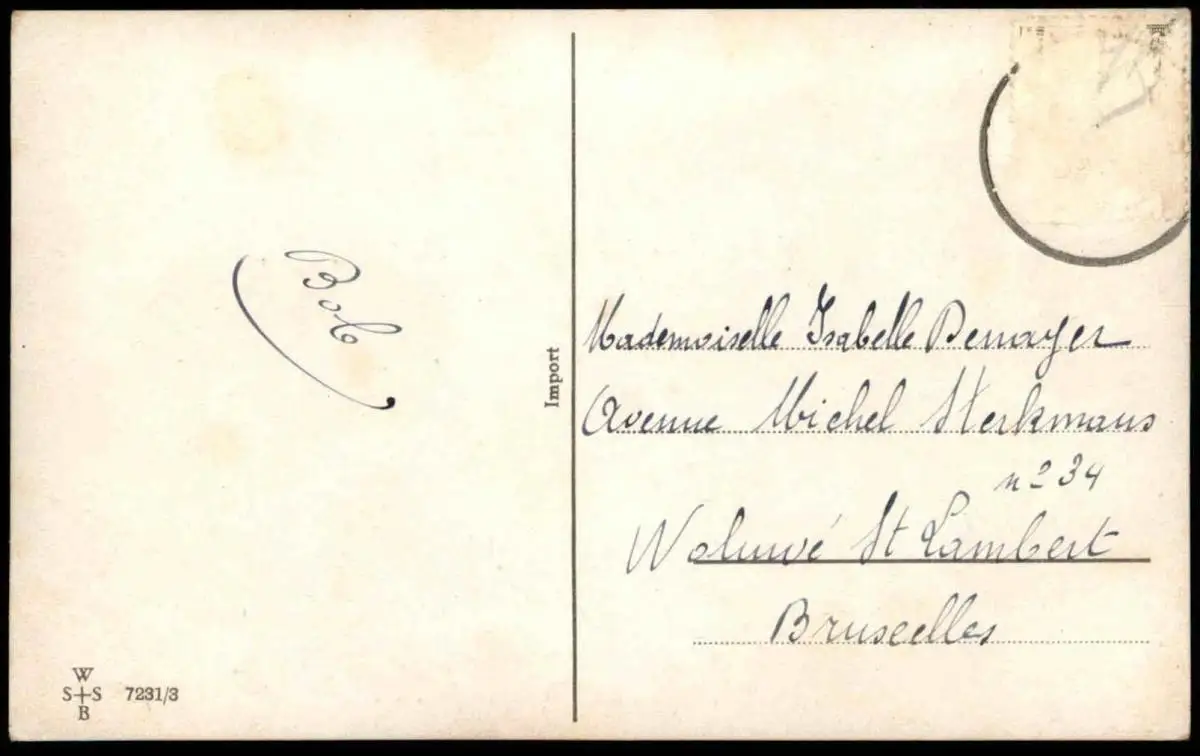 Bob
Import
Mademoiselle Isabelle Demayer
Avenue Michel Sterkmans
nº 34
Woluwé St Lambert
Bruxelles
W
S+S 7231/3
B